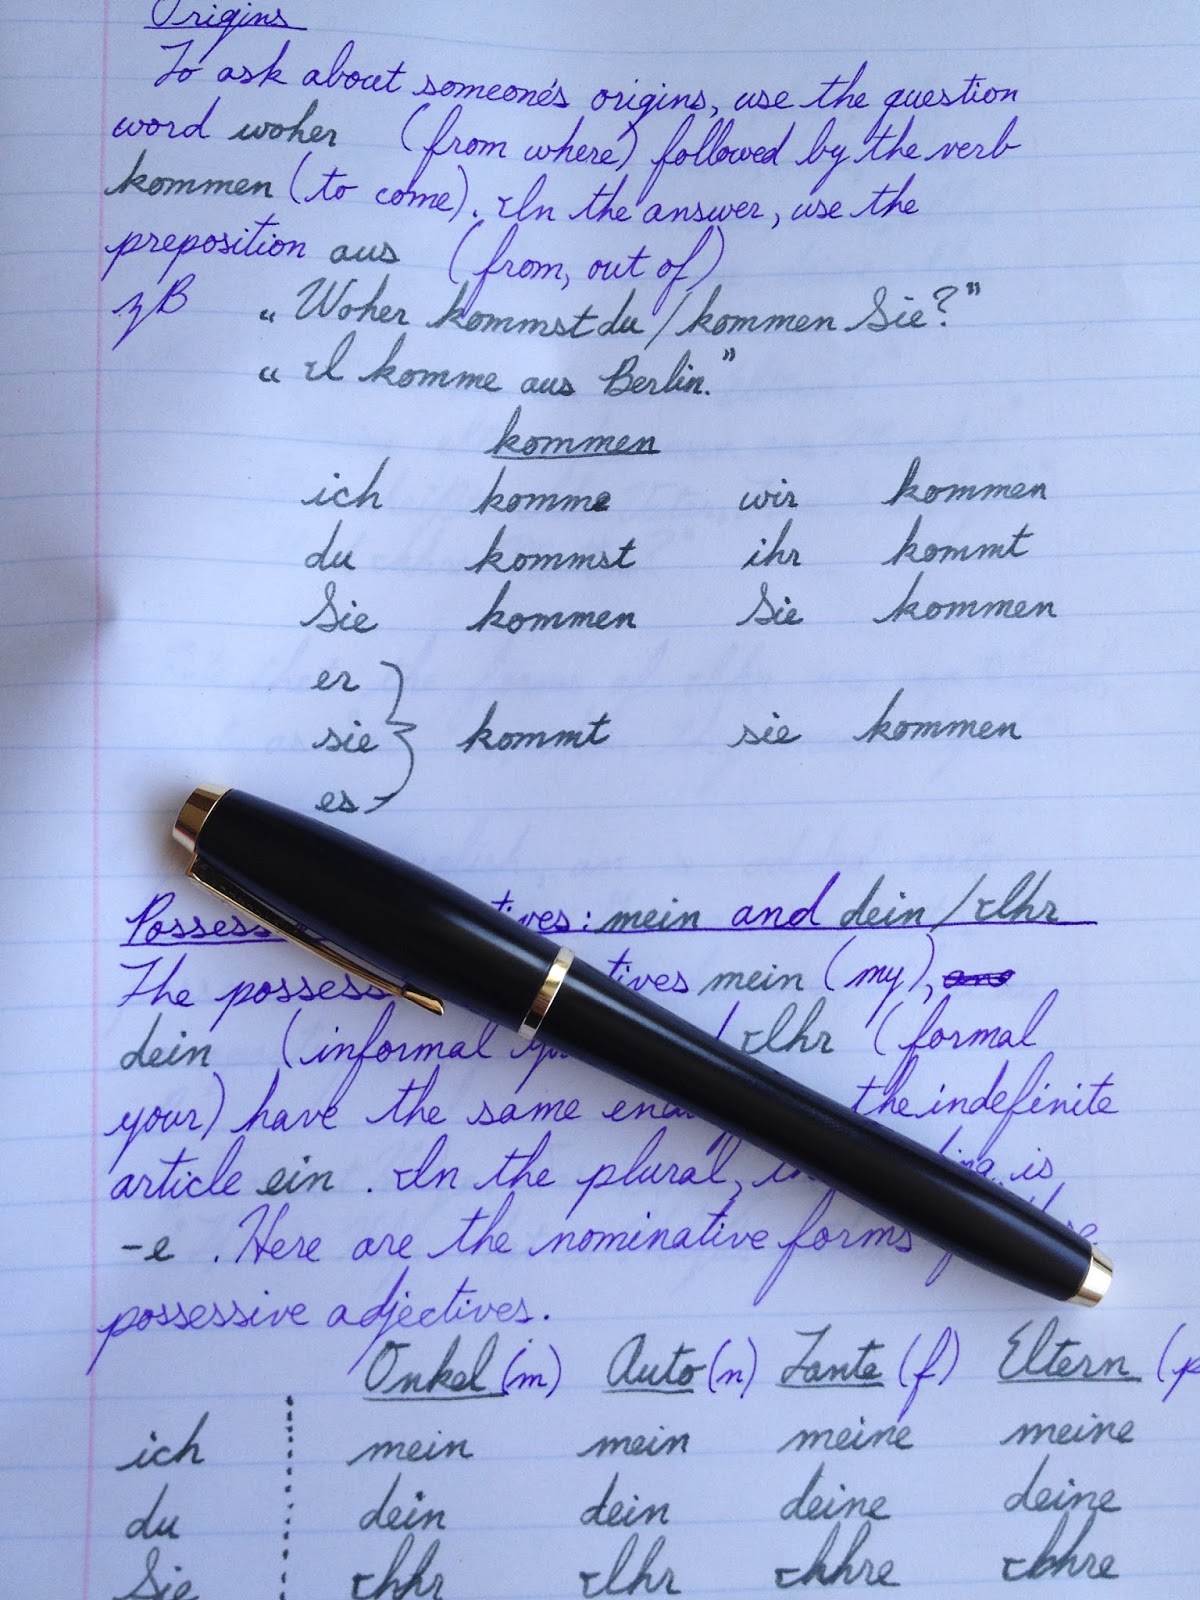 Origins
To ask about someone's origins, use the question
word woher (from where) followed by the verb
kommen (to come). In the answer, use the
preposition aus (from, out of)
zB „Woher kommst du / kommen Sie?”
„I komme aus Berlin.”
kommen
ich komme wir kommen
du kommst ihr kommt
Sie kommen Sie kommen
er
sie kommt sie kommen
es
Possess tives: mein and dein / Ihr
The possess tives mein (my),
dein (informal Ihr (formal
your) have the same the indefinite
article ein. In the plural, is
-e. Here are the nominative forms
possessive adjectives.
Onkel (m) Auto (n) Tante (f) Eltern (p
ich mein mein meine meine
du dein dein deine deine
Sie Ihr Ihr Ihre Ihre